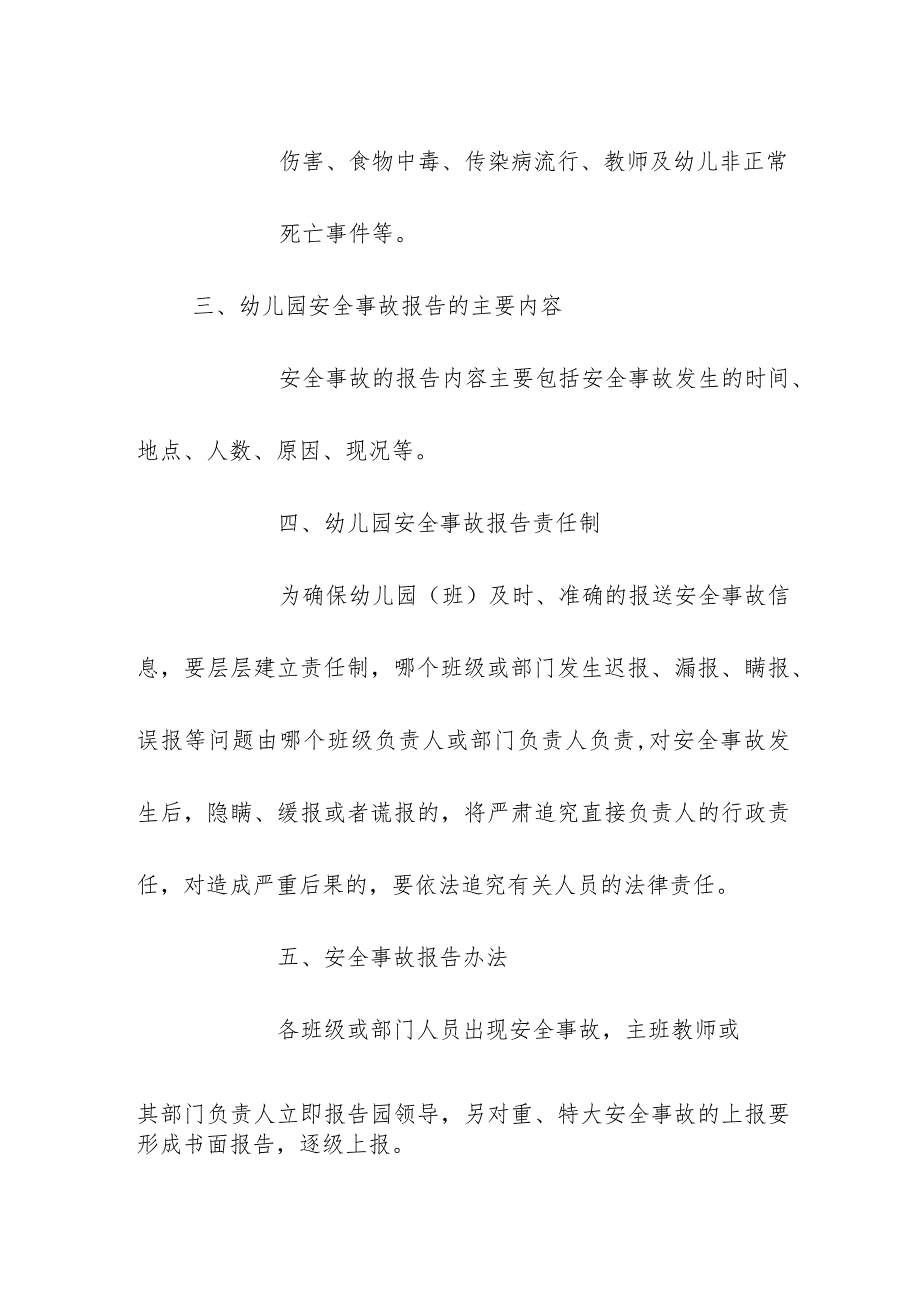 伤害、食物中毒、传染病流行、教师及幼儿非正常
死亡事件等。
三、幼儿园安全事故报告的主要内容
安全事故的报告内容主要包括安全事故发生的时间、
地点、人数、原因、现况等。
四、幼儿园安全事故报告责任制
为确保幼儿园（班）及时、准确的报送安全事故信
息，要层层建立责任制，哪个班级或部门发生迟报、漏报、瞒报、
误报等问题由哪个班级负责人或部门负责人负责,对安全事故发
生后，隐瞒、缓报或者谎报的，将严肃追究直接负责人的行政责
任，对造成严重后果的，要依法追究有关人员的法律责任。
五、安全事故报告办法
各班级或部门人员出现安全事故，主班教师或
其部门负责人立即报告园领导，另对重、特大安全事故的上报要
形成书面报告，逐级上报。